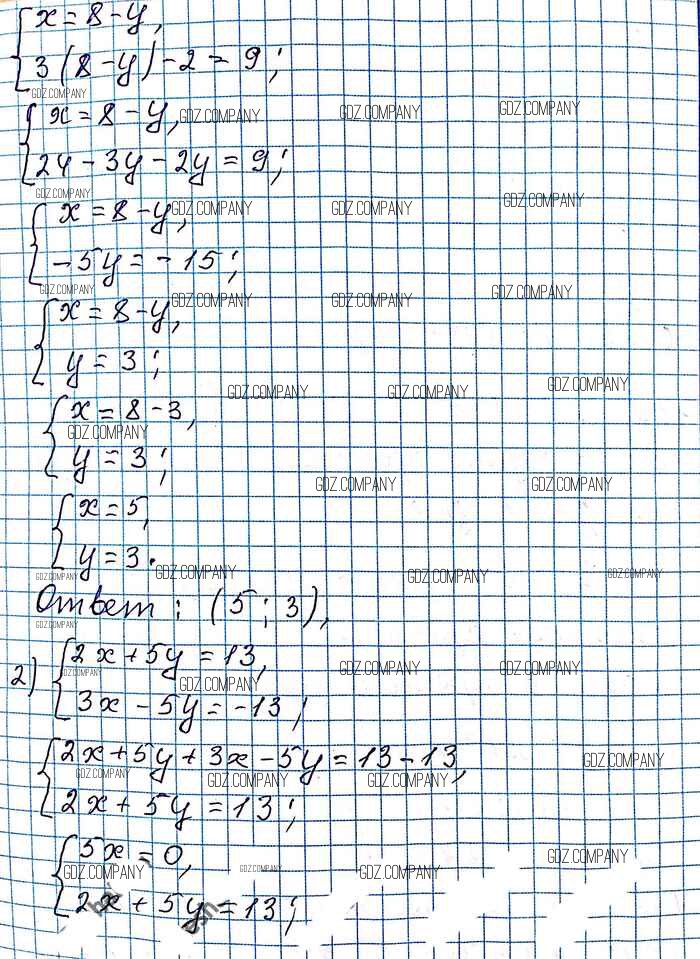 x = 8 - y,
3(8 - y) - 2 = 9;
GDZ.COMPANY
GDZ.COMPANY GDZ.COMPANY GDZ.COMPANY
x = 8 - y,
24 - 3y - 2y = 9;
GDZ.COMPANY
GDZ.COMPANY GDZ.COMPANY GDZ.COMPANY
x = 8 - y,
-5y = -15;
GDZ.COMPANY
GDZ.COMPANY GDZ.COMPANY GDZ.COMPANY
x = 8 - y,
y = 3;
GDZ.COMPANY GDZ.COMPANY GDZ.COMPANY
x = 8 - 3,
GDZ.COMPANY
y = 3;
GDZ.COMPANY GDZ.COMPANY
x = 5,
y = 3.
GDZ.COMPANY GDZ.COMPANY GDZ.COMPANY GDZ.COMPANY
Ответ: (5; 3),
GDZ.COMPANY
2) 2x + 5y = 13,
GDZ.COMPANY GDZ.COMPANY GDZ.COMPANY GDZ.COMPANY
3x - 5y = -13;
2x + 5y + 3x - 5y = 13 - 13,
GDZ.COMPANY
GDZ.COMPANY GDZ.COMPANY GDZ.COMPANY
2x + 5y = 13;
5x = 0,
GDZ.COMPANY
GDZ.COMPANY GDZ.COMPANY GDZ.COMPANY
2x + 5y = 13;